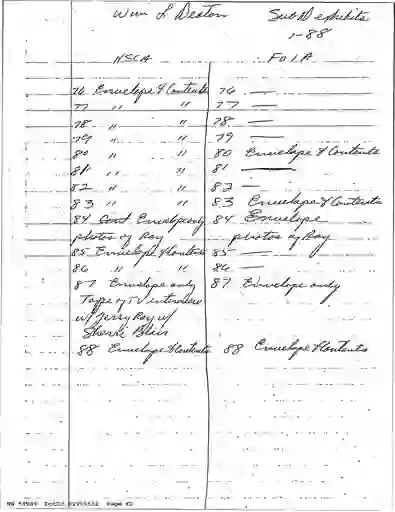 Wm L Deaton Sub D exhibits
1-88
HSCA FOIA
76 Envelope & Contents 76 —
77 " " 77 —
78 " " 78 —
79 " " 79 —
80 " " 80 Envelope & Contents
81 " " 81 —
82 " " 82 —
83 " " 83 Envelope & Contents
84 Cont Envelope only 84 Envelope
photos of Ray photos of Ray
85 Envelope & Contents 85 —
86 " " 86 —
87 Envelope only 87 Envelope only
Tape of TV interview
w/ Jerry Ray w/
Sherri Blair
88 Envelope & Contents 88 Envelope & Contents
Page 42